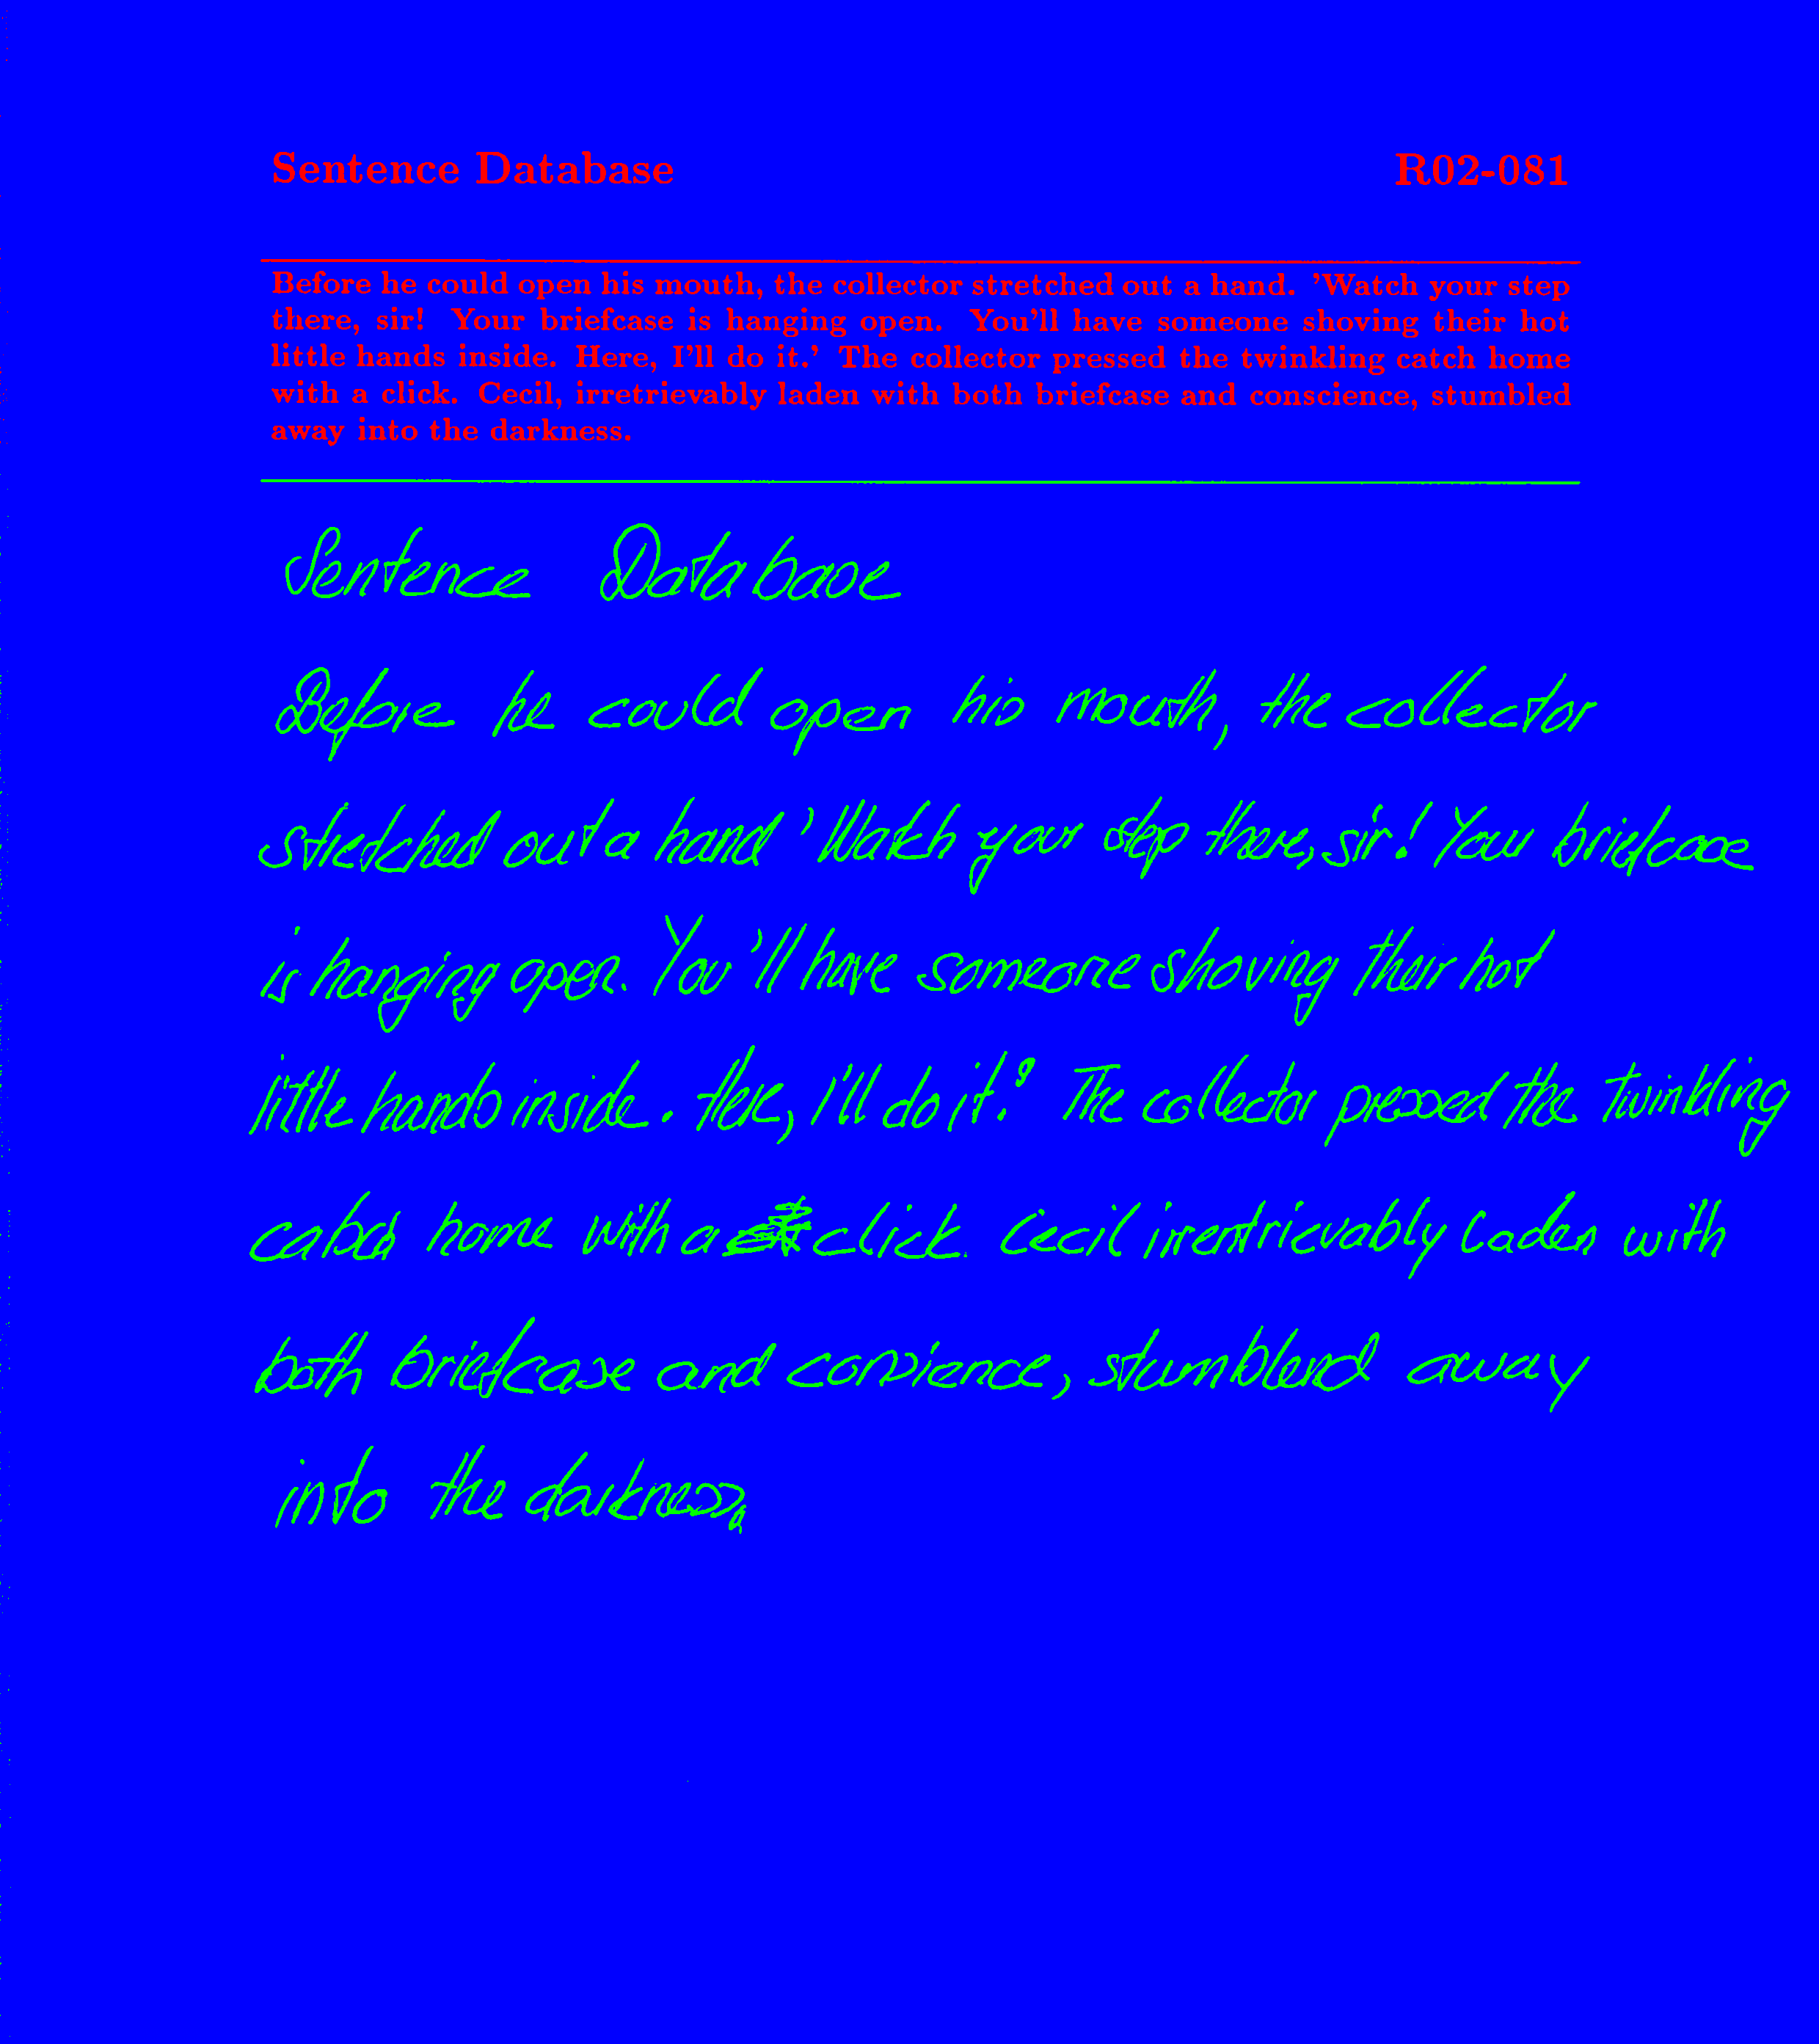 Sentence Database R02-081
Before he could open his mouth, the collector stretched out a hand. 'Watch your step
there, sir! Your briefcase is hanging open. You'll have someone shoving their hot
little hands inside. Here, I'll do it.' The collector pressed the twinkling catch home
with a click. Cecil, irretrievably laden with both briefcase and conscience, stumbled
away into the darkness.
Sentence Database
Before he could open his mouth, the collector
stretched out a hand 'Watch your step there, sir! Your briefcase
is hanging open. You'll have someone shoving their hot
little hands inside. Here, I'll do it.' The collector pressed the twinkling
home with a click. Cecil irrentrievably laden with
both briefcase and consience, stumblend away
into the darkness.